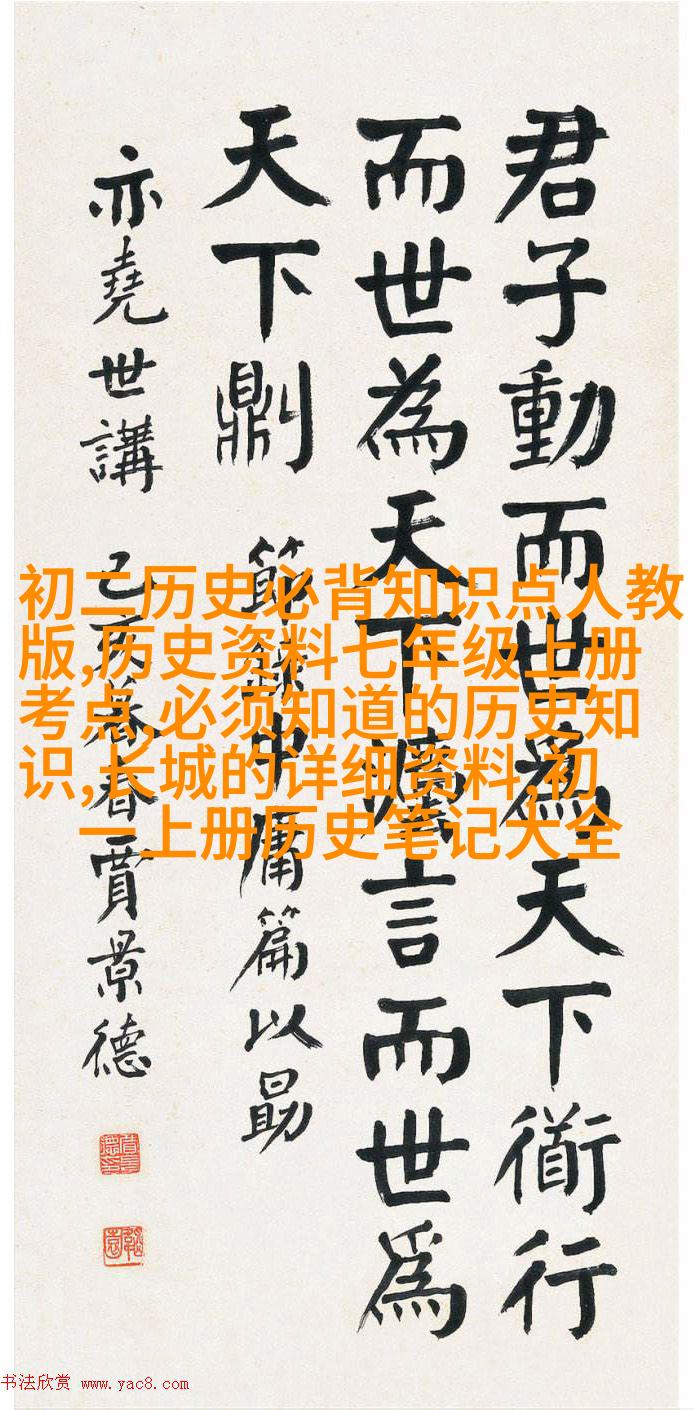 君子動而世為天下衜行
而世為天下灋言而世為
天下𠟭
節錄中庸篇以勗
亦堯世講
己亥暮春賈景德
初二历史必背知识点人教
版,历史资料七年级上册
考点,必须知道的历史知
识,长城的详细资料,初
一上册历史笔记大全
书法欣赏 www.yac8.com